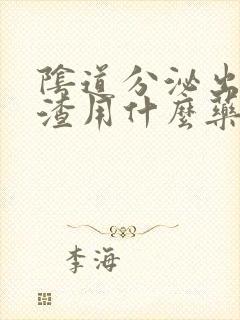 陰道分泌出
渣用什麼藥
李海